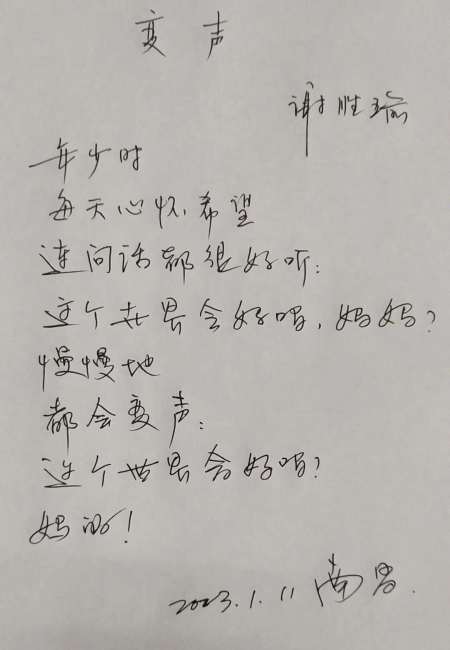 变声
谢胜瑜
年少时
每天心怀希望
连问话都很好听：
这个世界会好吗，妈妈？
慢慢地
都会变声：
这个世界会好吗？
妈的！
2023.1.11 南昌.